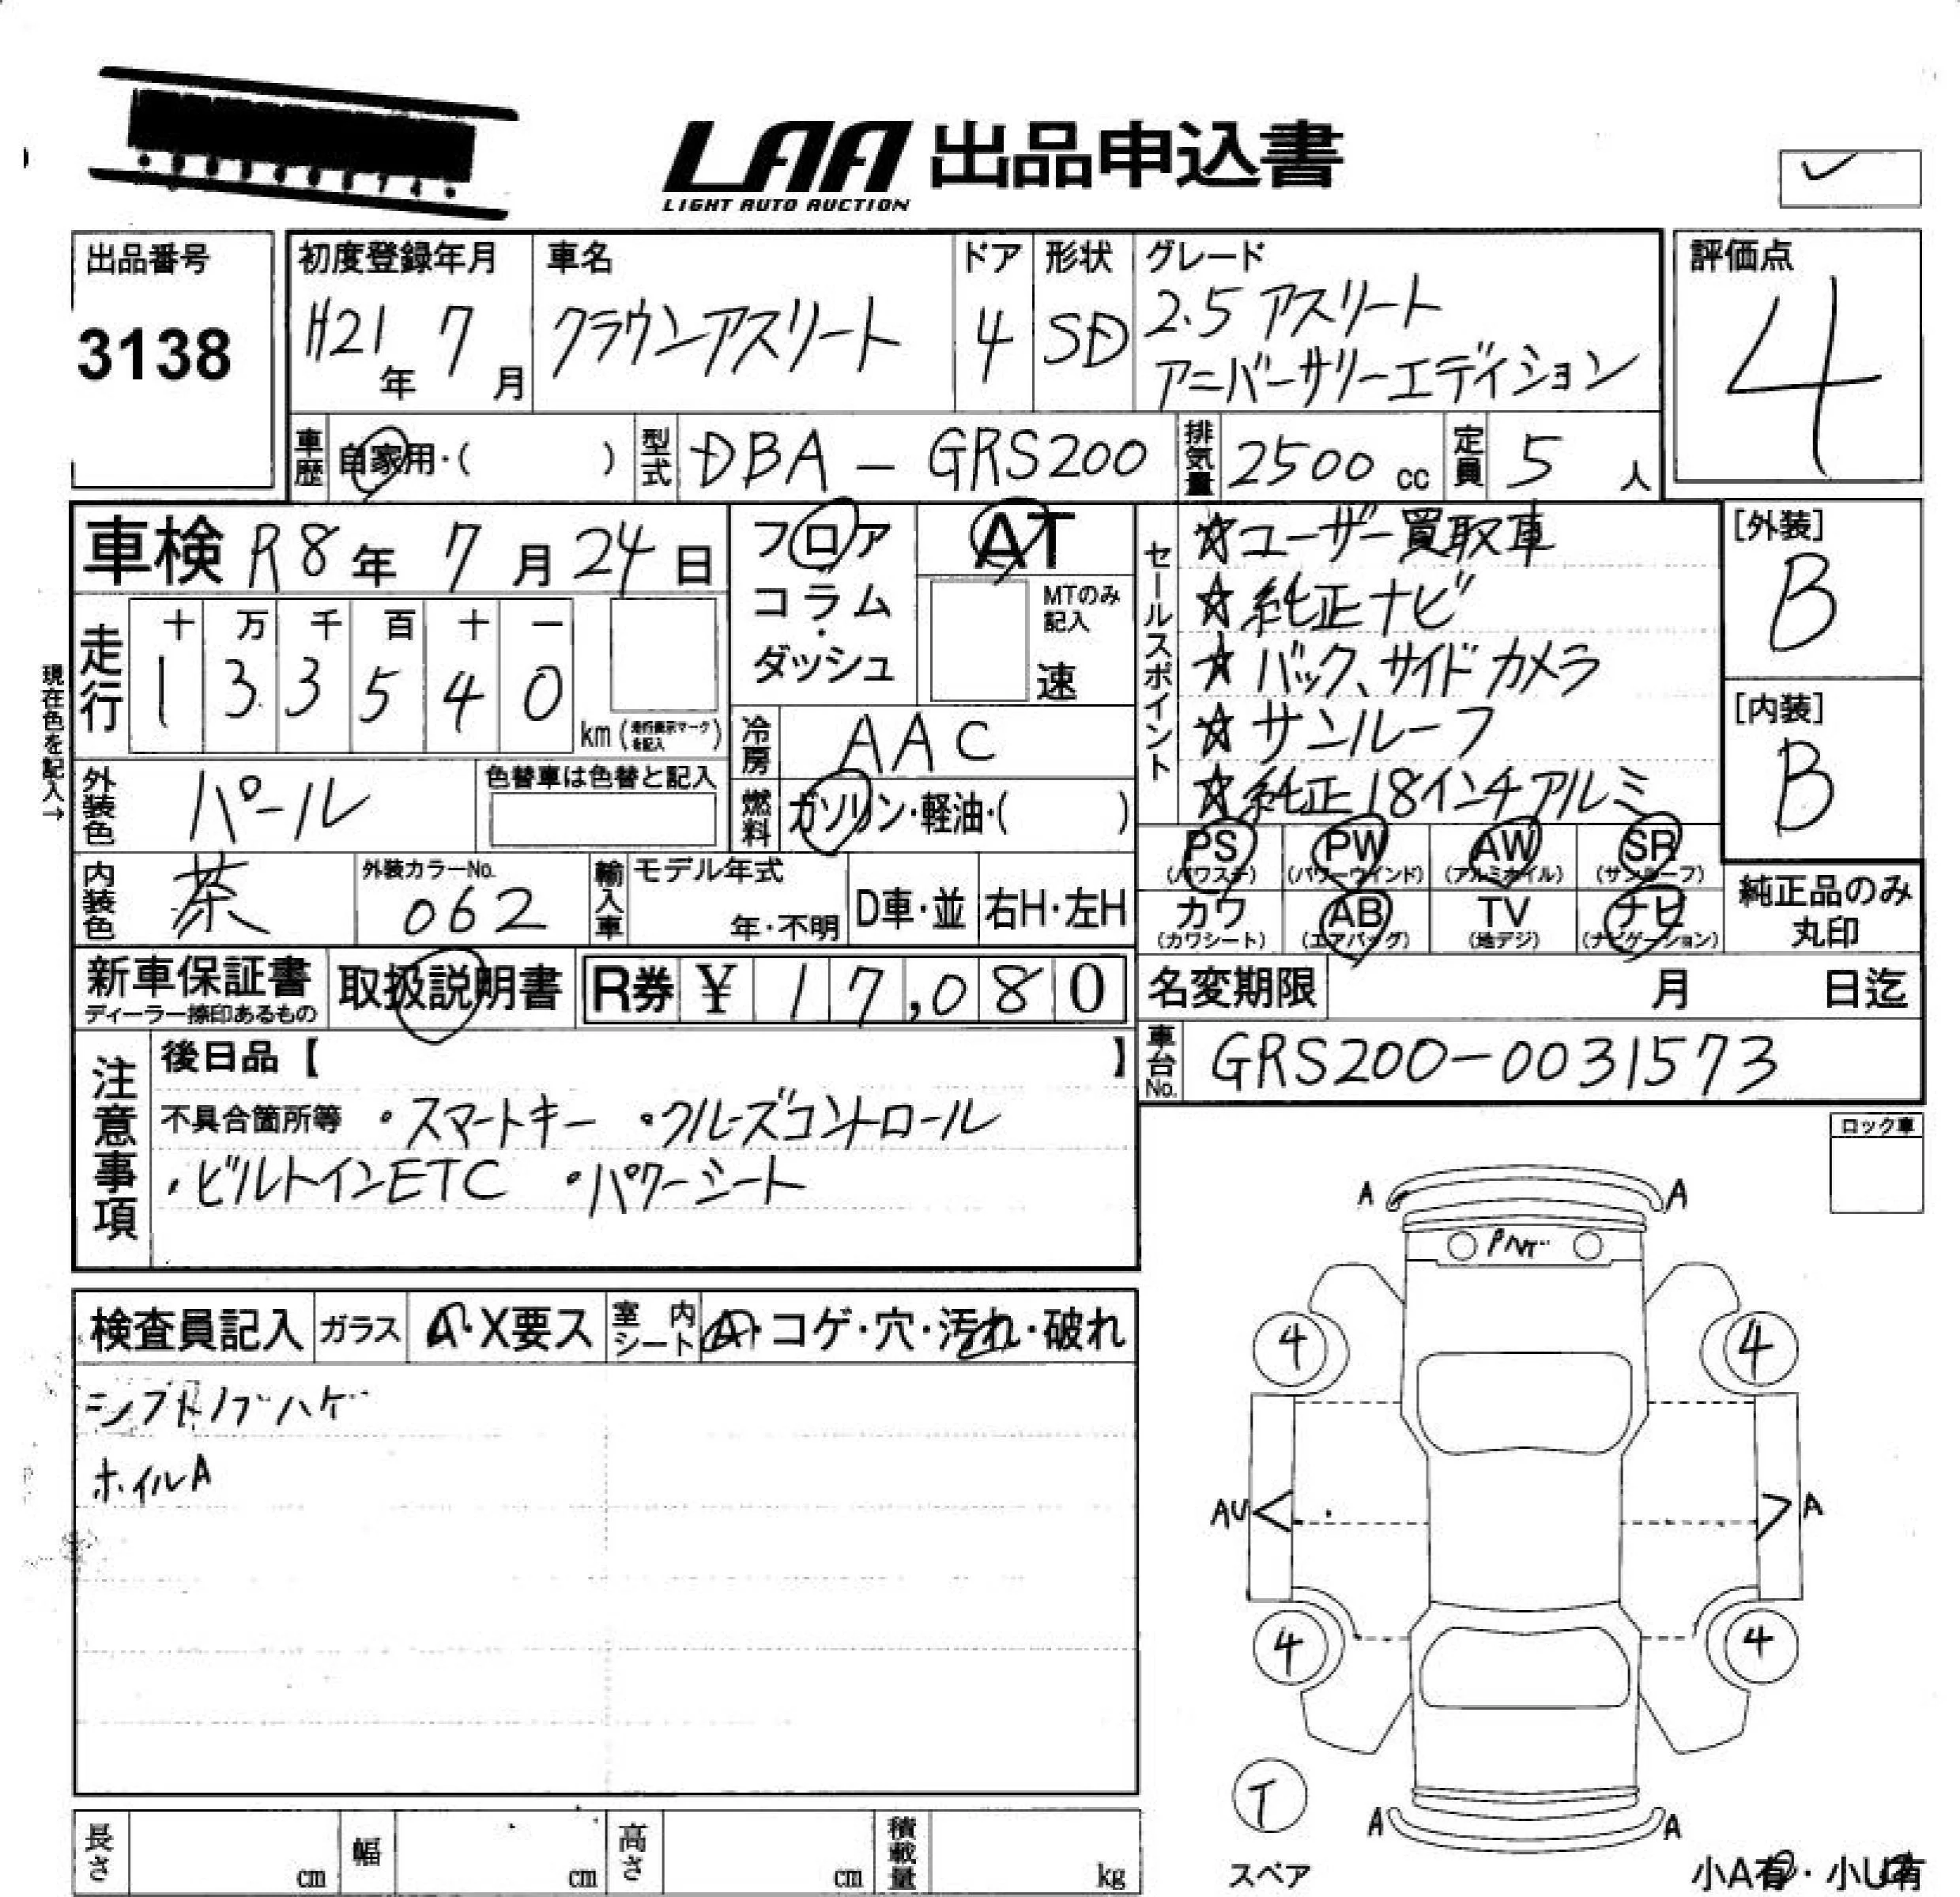 LAA 出品申込書
LIGHT AUTO AUCTION
出品番号
3138
初度登録年月
H21年 7月
車名
クラウンアスリート
ドア
4
形状
SD
グレード
2.5 アスリート
アニバーサリーエディション
評価点
4
車歴 自家用・( )
型式 DBA - GRS200
排気量 2500 cc
定員 5 人
車検 R8年 7月 24日
フロア
コラム
・
ダッシュ
AT
MTのみ
記入
速
セールスポイント
☆ユーザー買取車
☆純正ナビ
☆バック、サイドカメラ
☆サンルーフ
☆純正18インチアルミ
[外装]
B
[内装]
B
現在色を記入→
走行
十 万 千 百 十 一
1 3 3 5 4 0
km (走行表示マークを記入)
冷房 AAC
外装色 パール
色替車は色替と記入
燃料 ガソリン・軽油・( )
PS (パワステ)
PW (パワーウインド)
AW (アルミホイル)
SR (サンルーフ)
カワ (カワシート)
AB (エアバッグ)
TV (地デジ)
ナビ (ナビゲーション)
純正品のみ
丸印
内装色 茶
外装カラーNo.
062
輸入車
モデル年式
年・不明
D車・並
右H・左H
新車保証書
ディーラー捺印あるもの
取扱説明書
R券 ¥ 17,080
名変期限 月 日迄
車台No. GRS200-0031573
注意事項
後日品【 】
不具合箇所等 ・スマートキー ・クルーズコントロール
・ビルトインETC ・パワーシート
ロック車
A A
4 4
AU A
4 4
T
スペア
A A
小A有・小U有
検査員記入 ガラス A・X要ス 室内シート A・コゲ・穴・汚れ・破れ
シフトノブハゲ
ホイルA
長さ cm
幅 cm
高さ cm
積載量 kg